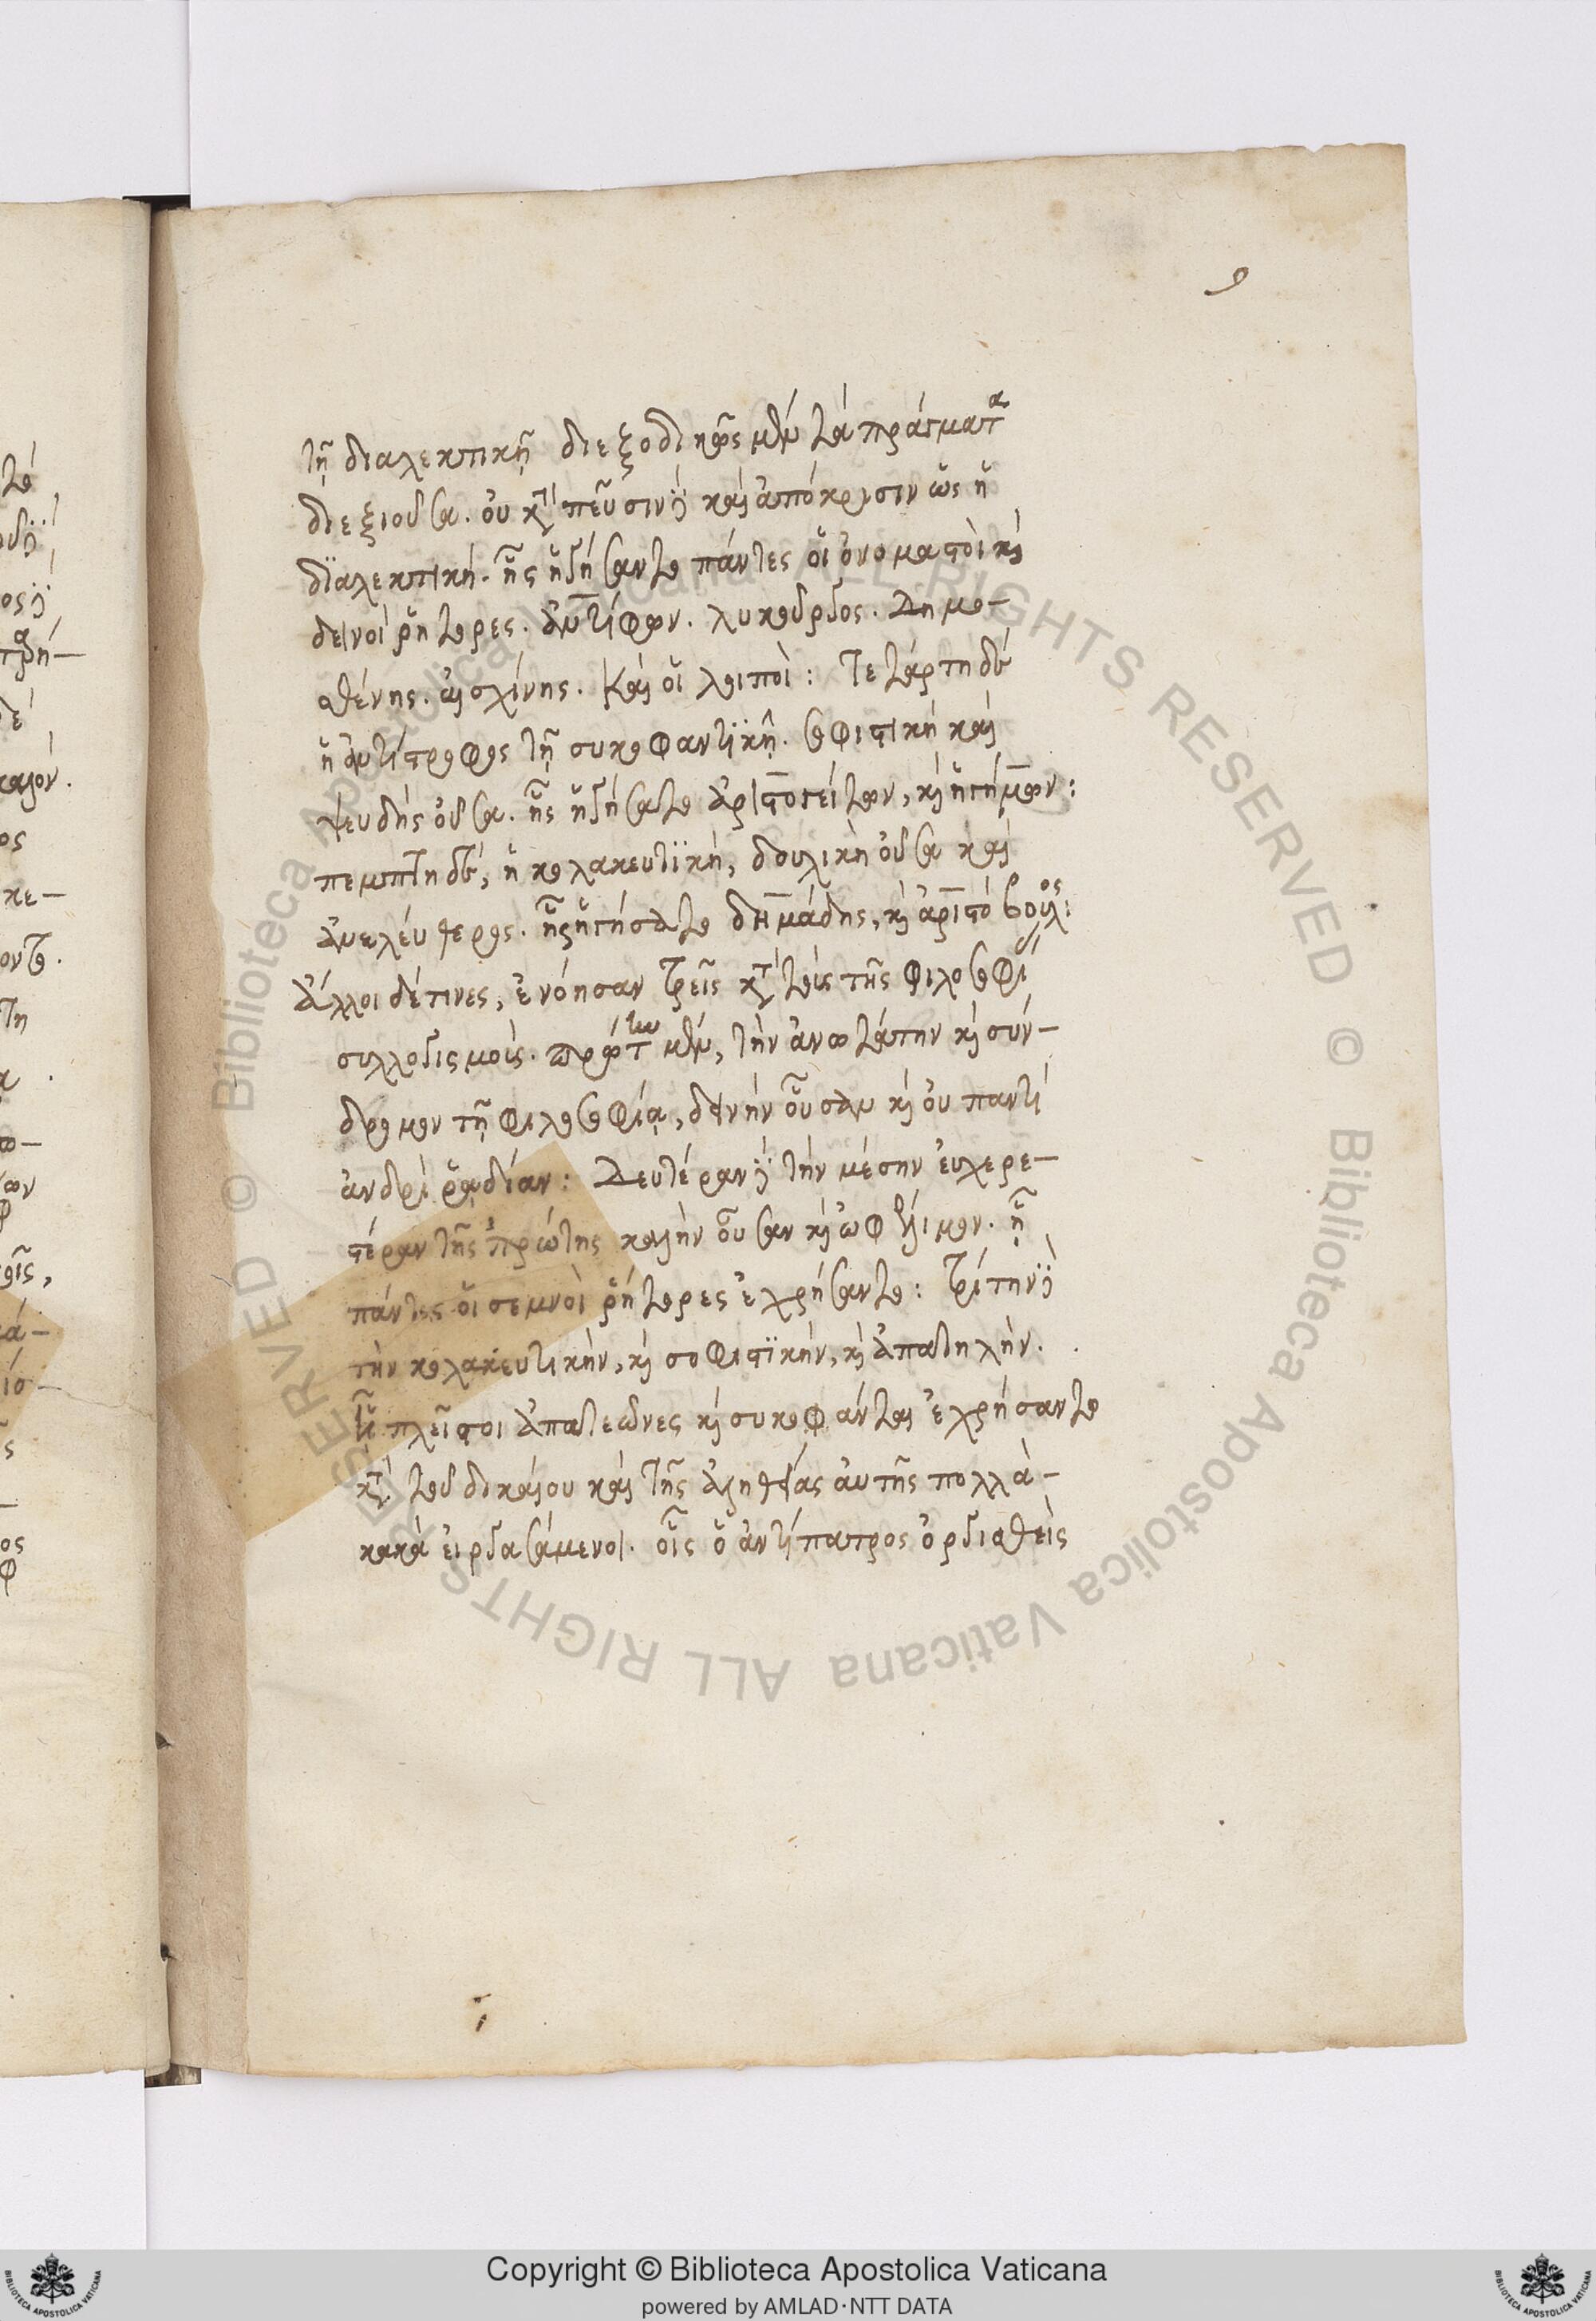 9
τῇ διαλεκτικῇ διεξοδικῶς μὲν τὰ πράγματα
διεξιοῦσα. οὐ κατὰ πεῦσιν δὲ καὶ ἀπόκρισιν ὡς ἡ
διαλεκτική. ἧς ἡγήσαντο πάντες οἱ ὀνομαστοὶ καὶ
δεινοὶ ῥήτορες. ἀντιφῶν. λυκοῦργος. Δημο-
σθένης. αἰσχίνης. καὶ οἱ λοιποὶ: Τετάρτη δὲ
ἡ ἀντίστροφος τῇ συκοφαντικῇ. σοφιστικὴ καὶ
ψευδὴς οὖσα. ἧς ἡγήσατο ἀριστογείτων, καὶ ἡγήμων:
πεμπτη δὲ, ἡ κολακευτικὴ, δουλικὴ οὖσα καὶ
ἀνελεύθερος. ἧς ἡγήσατο δημάδης, καὶ ἀριστόβουλος:
Ἄλλοι δέ τινες, ἐνόησαν τρεῖς κατὰ τοὺς τῆς φιλοσοφί
συλλογισμοὺς. πρώτην μὲν, τὴν ἀνωτάτην καὶ σύν-
δρομον τῇ φιλοσοφίᾳ, δεινὴν οὖσαν καὶ οὐ παντὶ
ἀνδρὶ ῥᾳδίαν: Δευτέραν δὲ τὴν μέσην εὐχερε-
στέραν τῆς πρώτης κοινὴν οὖσαν καὶ ὠφέλιμον. ᾗ
πάντες οἱ σεμνοὶ ῥήτορες ἐχρήσαντο: Τρίτην δὲ
τὴν κολακευτικὴν, καὶ σοφιστικὴν, καὶ ἀπατηλὴν.
ᾗ πλεῖστοι ἀπατεῶνες καὶ συκοφάνται ἐχρήσαντο
κατὰ τοῦ δικαίου καὶ τῆς ἀληθείας αὐτῆς πολλὰ-
κακὰ εἰργασάμενοι. οἷς ὁ ἀντίπατρος ὀργισθεὶς
Copyright © Biblioteca Apostolica Vaticana
powered by AMLAD·NTT DATA